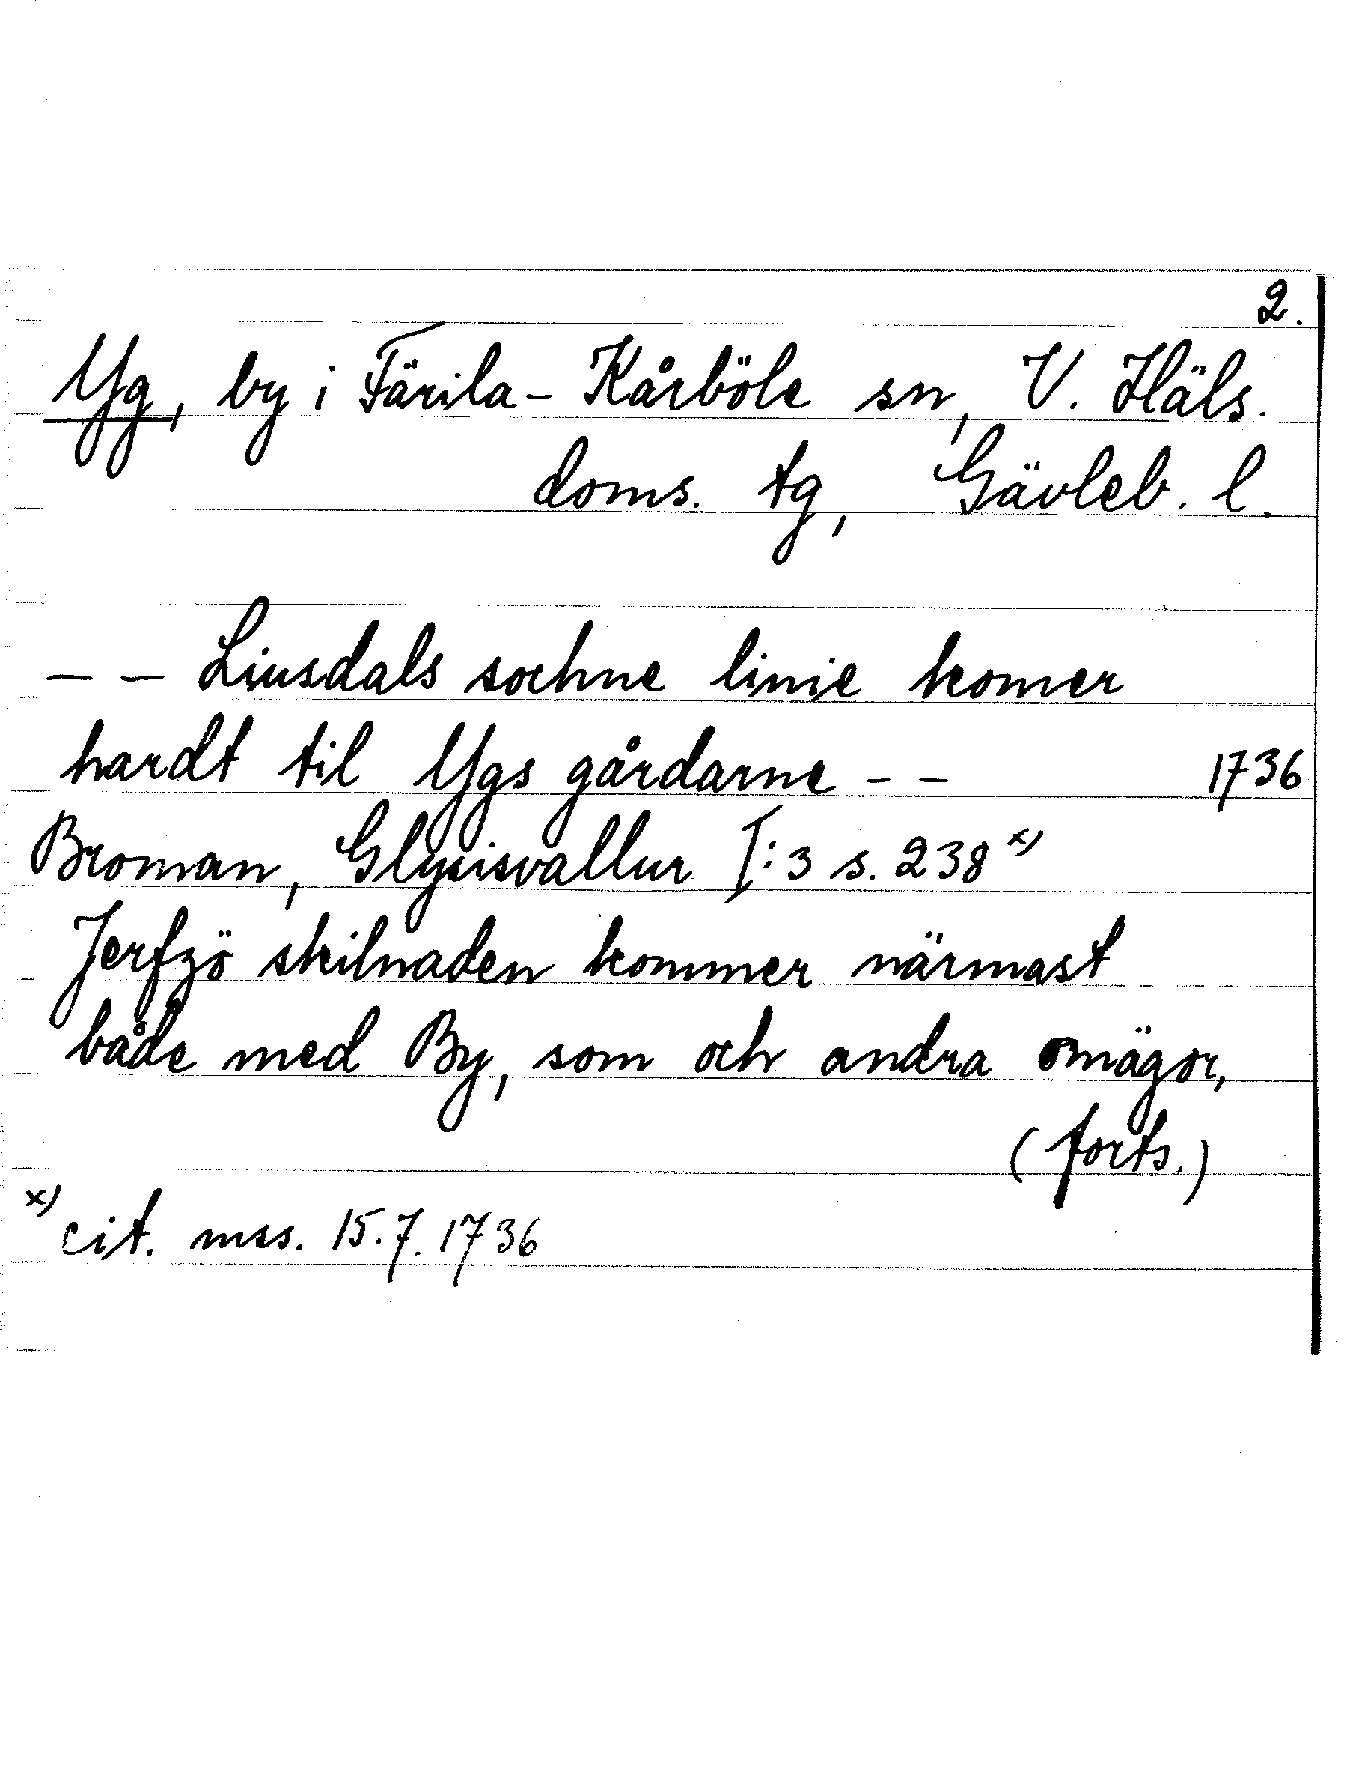 2.
Yg, by i Färila-Kårböle sn, V. Häls.
doms. tg, Gävleb. l.
-- Liusdals sochne linie komer
hardt til Ygs gårdarne -- 1736
Broman, Glysisvallur I:3 s. 238 x)
Jerfzö skilnaden kommer närmast
både med By, som och andra omägor,
(forts.)
x) cit. mss. 15.7.1736